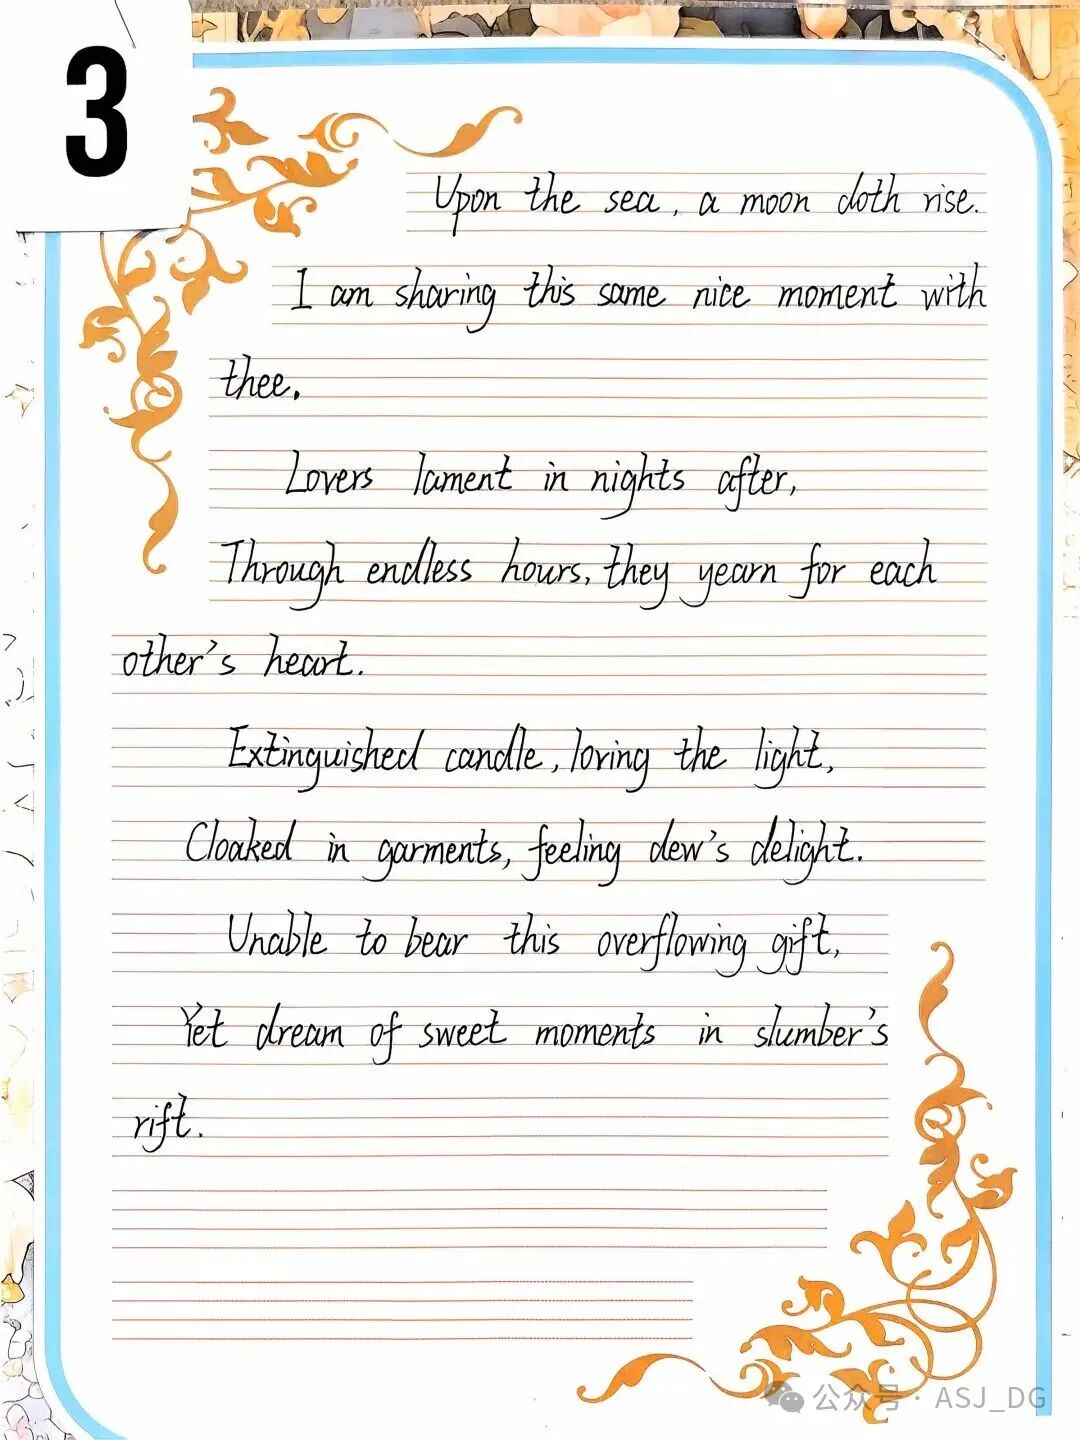 3
Upon the sea, a moon doth rise.
I am sharing this same nice moment with
thee.
Lovers lament in nights after,
Through endless hours, they yearn for each
other's heart.
Extinguished candle, loving the light,
Cloaked in garments, feeling dew's delight.
Unable to bear this overflowing gift,
Yet dream of sweet moments in slumber's
rift.
公众号 · ASJ_DG